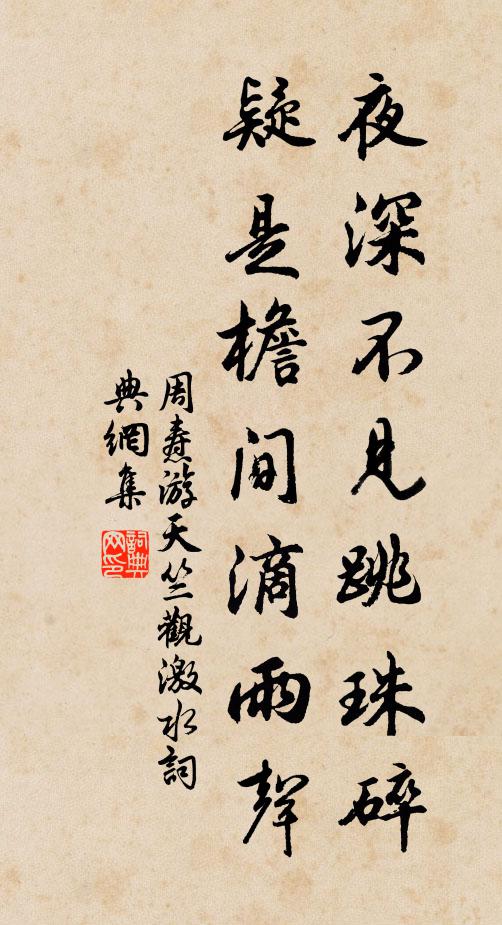 夜深不見跳珠碎
疑是檐間滴雨聲
周燾游天竺觀激水詞
典網集
詞典网印